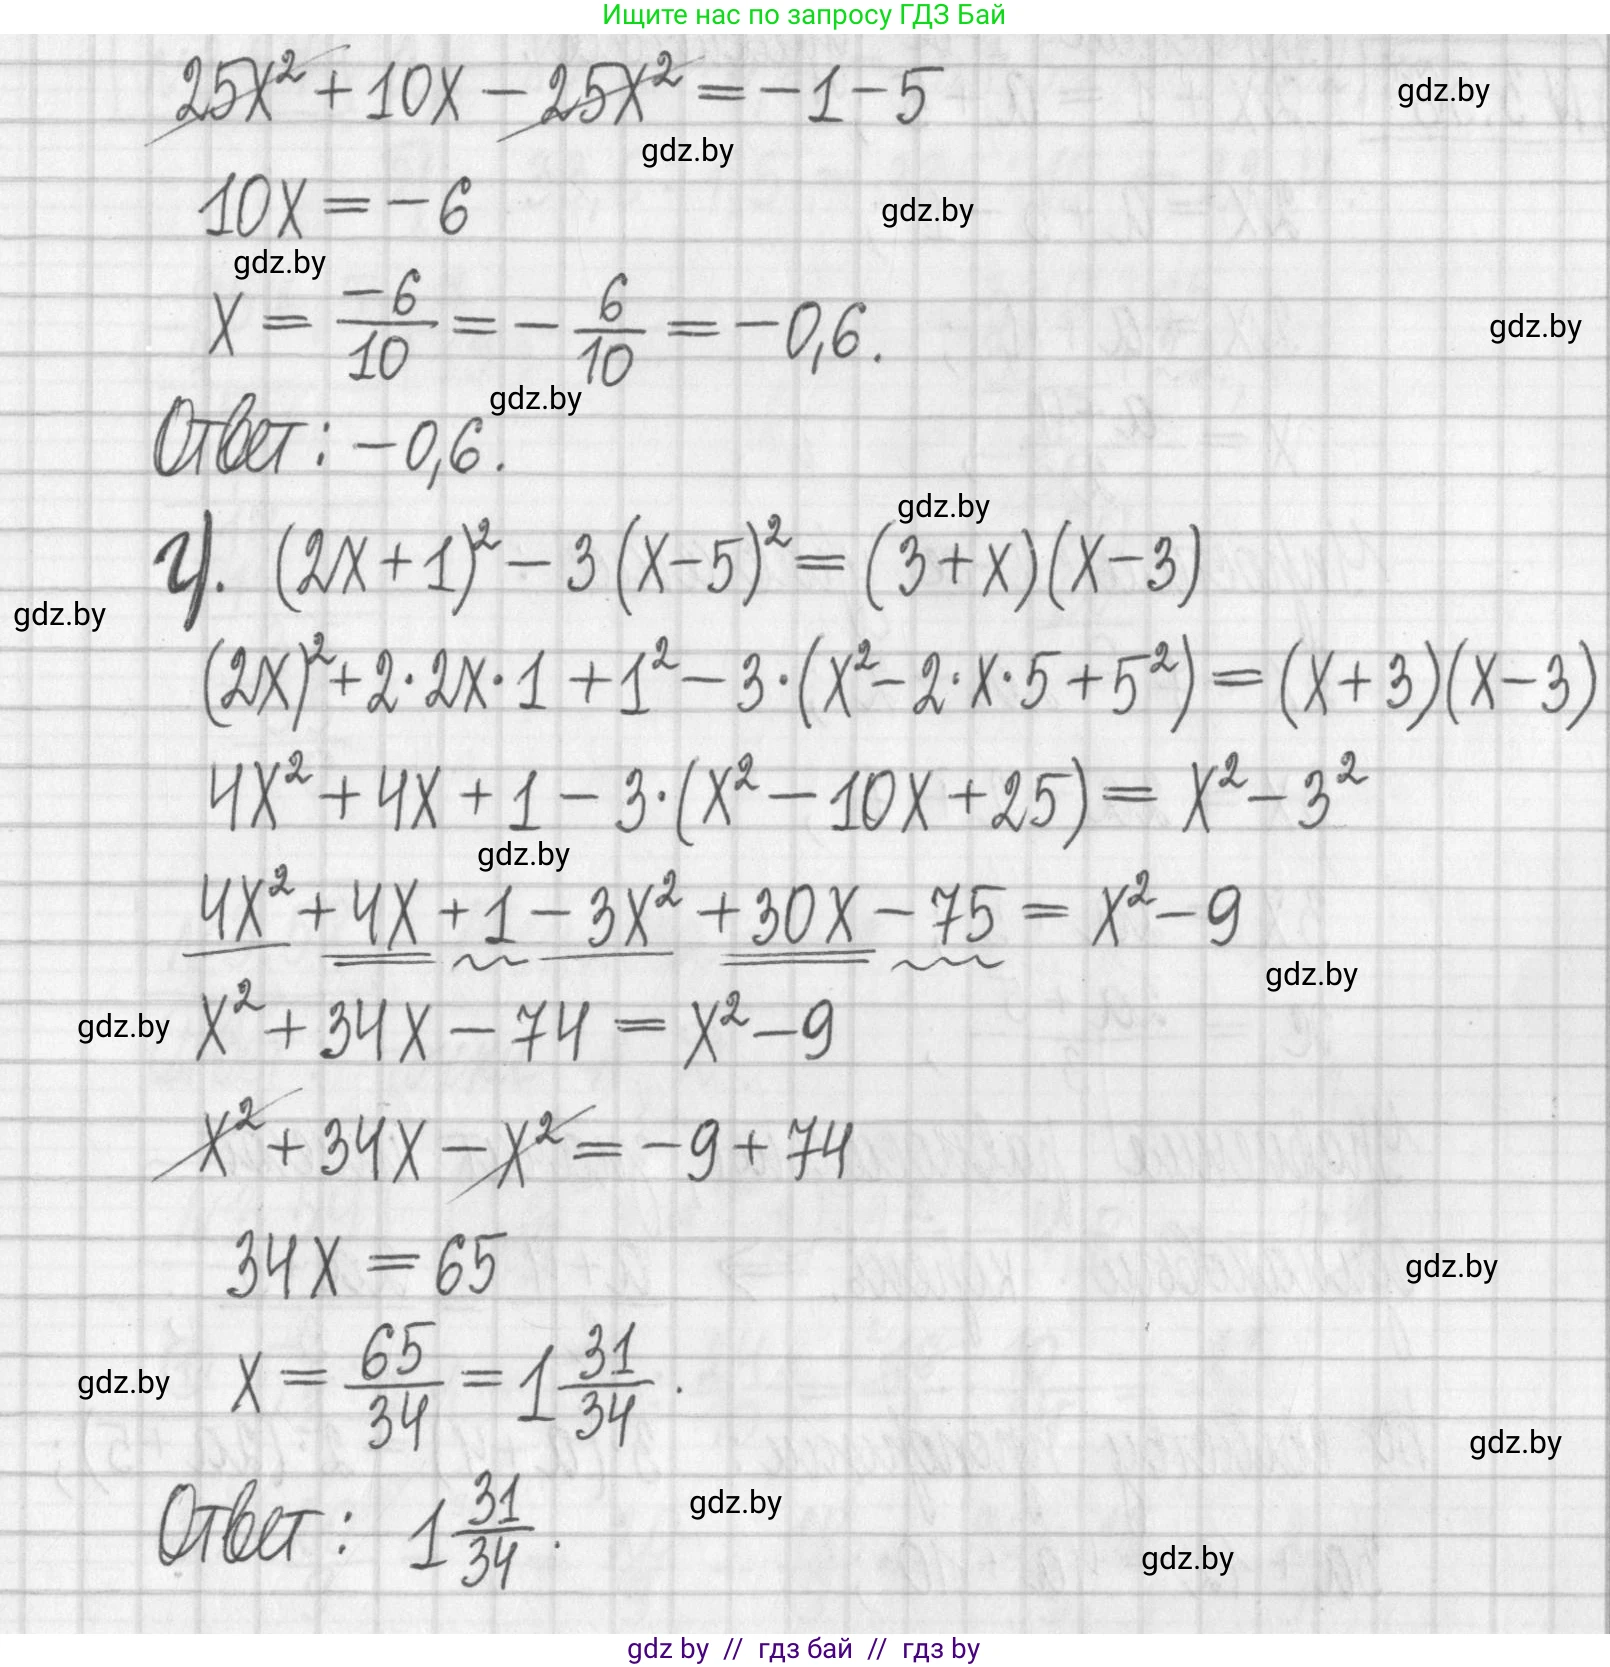 Ищите нас по запросу ГДЗ Бай
25x² + 10x − 25x² = −1 − 5
gdz.by
gdz.by
10x = −6
gdz.by
gdz.by
x = −6/10 = −6/10 = −0,6.
gdz.by
gdz.by
Ответ: −0,6.
gdz.by
г). (2x + 1)² − 3(x − 5)² = (3 + x)(x − 3)
gdz.by
(2x)² + 2·2x·1 + 1² − 3·(x² − 2·x·5 + 5²) = (x + 3)(x − 3)
4x² + 4x + 1 − 3·(x² − 10x + 25) = x² − 3²
gdz.by
4x² + 4x + 1 − 3x² + 30x − 75 = x² − 9
gdz.by
gdz.by
x² + 34x − 74 = x² − 9
x² + 34x − x² = −9 + 74
34x = 65
gdz.by
x = 65/34 = 1 31/34.
gdz.by
gdz.by
gdz.by
Ответ: 1 31/34.
gdz.by
gdz by // гдз бай // гдз by